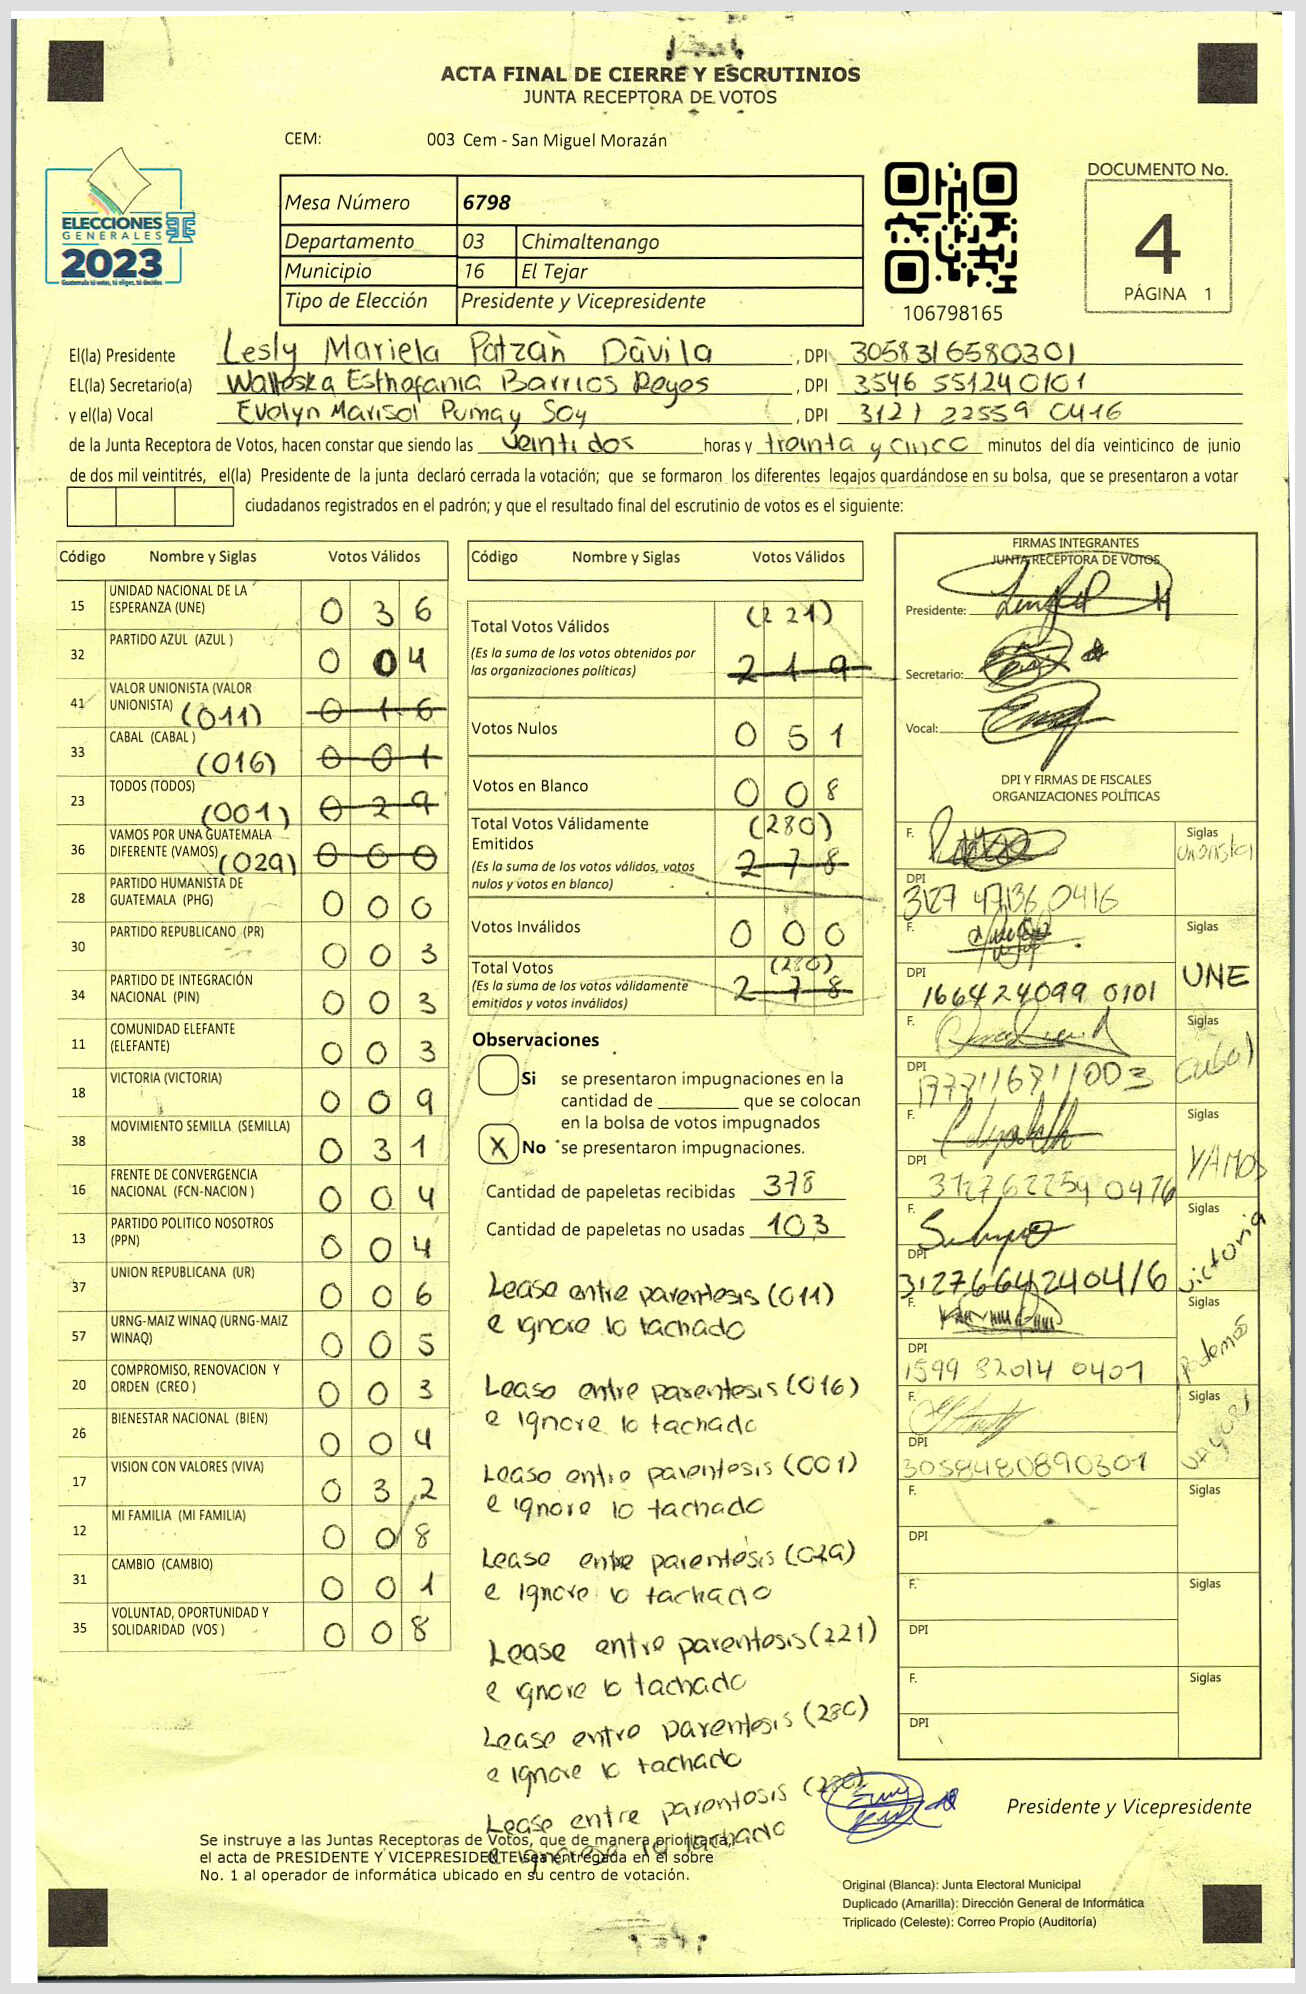 ACTA FINAL DE CIERRE Y ESCRUTINIOS
JUNTA RECEPTORA DE VOTOS
CEM: 003 Cem - San Miguel Morazán
ELECCIONES
GENERALES
2023
Guatemala tú votas, tú eliges, tú decides
Mesa Número 6798
Departamento 03 Chimaltenango
Municipio 16 El Tejar
Tipo de Elección Presidente y Vicepresidente
106798165
DOCUMENTO No.
4
PÁGINA 1
El(la) Presidente Lesly Mariela Patzàn Dàvila , DPI 3058316580301
EL(la) Secretario(a) Walleska Esthefania Barrios Reyes , DPI 3546 551240101
y el(la) Vocal Evelyn Marisol Pumay Soy , DPI 3121 22559 0416
de la Junta Receptora de Votos, hacen constar que siendo las veinti dos horas y treinta y cinco minutos del día veinticinco de junio
de dos mil veintitrés, el(la) Presidente de la junta declaró cerrada la votación; que se formaron los diferentes legajos guardándose en su bolsa, que se presentaron a votar
ciudadanos registrados en el padrón; y que el resultado final del escrutinio de votos es el siguiente:
Código Nombre y Siglas Votos Válidos
15 UNIDAD NACIONAL DE LA ESPERANZA (UNE) 0 3 6
32 PARTIDO AZUL (AZUL ) 0 0 4
41 VALOR UNIONISTA (VALOR UNIONISTA) (011) 0 1 6
33 CABAL (CABAL ) (016) 0 0 1
23 TODOS (TODOS) (001) 0 2 9
36 VAMOS POR UNA GUATEMALA DIFERENTE (VAMOS) (029) 0 0 0
28 PARTIDO HUMANISTA DE GUATEMALA (PHG) 0 0 0
30 PARTIDO REPUBLICANO (PR) 0 0 3
34 PARTIDO DE INTEGRACIÓN NACIONAL (PIN) 0 0 3
11 COMUNIDAD ELEFANTE (ELEFANTE) 0 0 3
18 VICTORIA (VICTORIA) 0 0 9
38 MOVIMIENTO SEMILLA (SEMILLA) 0 3 1
16 FRENTE DE CONVERGENCIA NACIONAL (FCN-NACION ) 0 0 4
13 PARTIDO POLITICO NOSOTROS (PPN) 0 0 4
37 UNION REPUBLICANA (UR) 0 0 6
57 URNG-MAIZ WINAQ (URNG-MAIZ WINAQ) 0 0 5
20 COMPROMISO, RENOVACION Y ORDEN (CREO ) 0 0 3
26 BIENESTAR NACIONAL (BIEN) 0 0 4
17 VISION CON VALORES (VIVA) 0 3 2
12 MI FAMILIA (MI FAMILIA) 0 0 8
31 CAMBIO (CAMBIO) 0 0 1
35 VOLUNTAD, OPORTUNIDAD Y SOLIDARIDAD (VOS ) 0 0 8
Código Nombre y Siglas Votos Válidos
Total Votos Válidos (221)
(Es la suma de los votos obtenidos por las organizaciones políticas) 2 1 9
Votos Nulos 0 5 1
Votos en Blanco 0 0 8
Total Votos Válidamente Emitidos (280)
(Es la suma de los votos válidos, votos nulos y votos en blanco) 2 7 8
Votos Inválidos 0 0 0
Total Votos (280)
(Es la suma de los votos válidamente emitidos y votos inválidos) 2 7 8
Observaciones
Si se presentaron impugnaciones en la
cantidad de ________ que se colocan
en la bolsa de votos impugnados
X No se presentaron impugnaciones.
Cantidad de papeletas recibidas 378
Cantidad de papeletas no usadas 103
Lease entre parentesis (011)
e ignore lo tachado
Lease entre parentesis (016)
e ignore lo tachado
Lease entre parentesis (001)
e ignore lo tachado
Lease entre parentesis (029)
e ignore lo tachado
Lease entre parentesis (221)
e ignore lo tachado
Lease entre parentesis (280)
e ignore lo tachado
Lease entre parentesis (280)
e ignorese lo tachado
FIRMAS INTEGRANTES
JUNTA RECEPTORA DE VOTOS
Presidente:
Secretario:
Vocal:
DPI Y FIRMAS DE FISCALES
ORGANIZACIONES POLÍTICAS
F. Siglas Unionista
DPI 3127 47136 0416
F. Siglas UNE
DPI 166424099 0101
F. Siglas Cabal
DPI 1777116711003
F. Siglas VAMOS
DPI 312762259 0416
F. Siglas Victoria
DPI 3127664240416
F. Siglas Podemos
DPI 1599 82014 0401
F. Siglas
DPI 3058480890301
F. Siglas
DPI
F. Siglas
DPI
F. Siglas
DPI
Presidente y Vicepresidente
Se instruye a las Juntas Receptoras de Votos, que de manera prioritaria,
el acta de PRESIDENTE Y VICEPRESIDENTE sea entregada en el sobre
No. 1 al operador de informática ubicado en su centro de votación.
Original (Blanca): Junta Electoral Municipal
Duplicado (Amarilla): Dirección General de Informática
Triplicado (Celeste): Correo Propio (Auditoría)